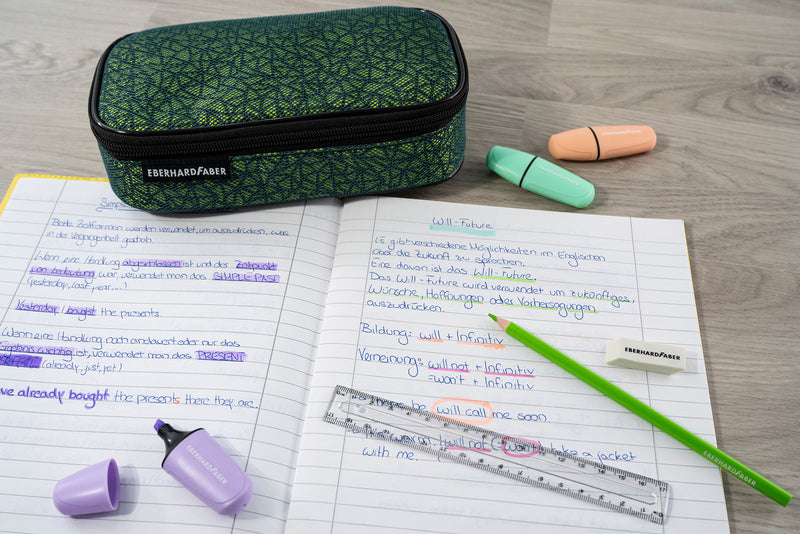 EBERHARDFABER
Simple
Beide Zeitformen werden verwendet, um auszudrücken, was
in der Vergangenheit geschah.
Wenn eine Handlung abgeschlossen ist und der Zeitpunkt
von Bedeutung war, verwendet man das SIMPLE PAST
(yesterday, last year...)
Yesterday I bought the presents.
Wenn eine Handlung noch andauert oder nur das
Ergebnis wichtig ist, verwendet man das PRESENT
(already, just, yet)
have already bought the presents there they are.
EBERHARDFABER
Will-Future
Es gibt verschiedene Möglichkeiten im Englischen
über die Zukunft zu sprechen.
Eine davon ist das Will-Future.
Das Will-Future wird verwendet um zukünftiges,
Wünsche, Hoffnungen oder Vorhersagungen
auszudrücken.
Bildung: will + Infinitiv
Verneinung: will not + Infinitiv
=won't + Infinitiv
be will call me soon.
will not (=won't) take a jacket
with me.
EBERHARDFABER
EBERHARDFABER